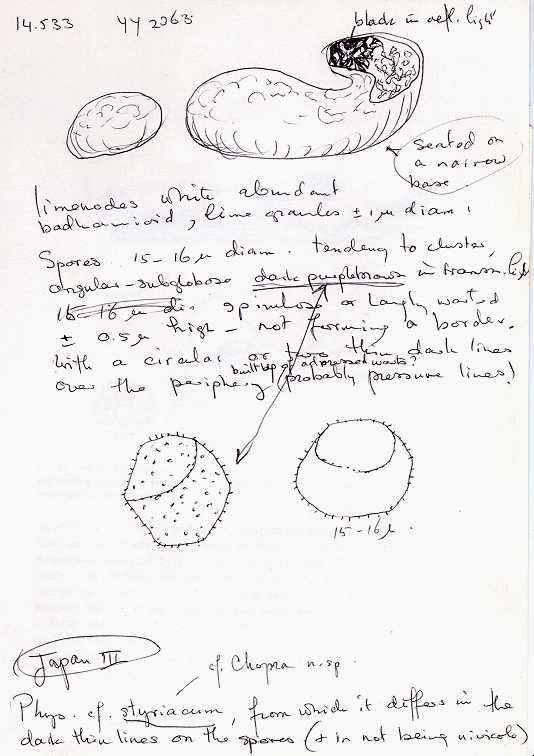 14.533 YY 2063
black in refl. light
Seated on
a narrow
base.
limenodes white abundant
badhamioid, lime granules ± 1 µ diam.
Spores 15-16 µ diam. tending to cluster,
angular-subglobose dark purplebrown in transm. light
15 16 µ di. spinulose or largely warted
± 0.5 µ high - not forming a border.
With a circular or two thin dark lines
built up of adpressed warts?
over the periphery (probably pressure lines!)
15-16 µ.
Japan III
cf. Chopra n.sp.
Phys. cf. styriacum, from which it differs in the
dark thin lines on the spores (+ in not being nivicole)